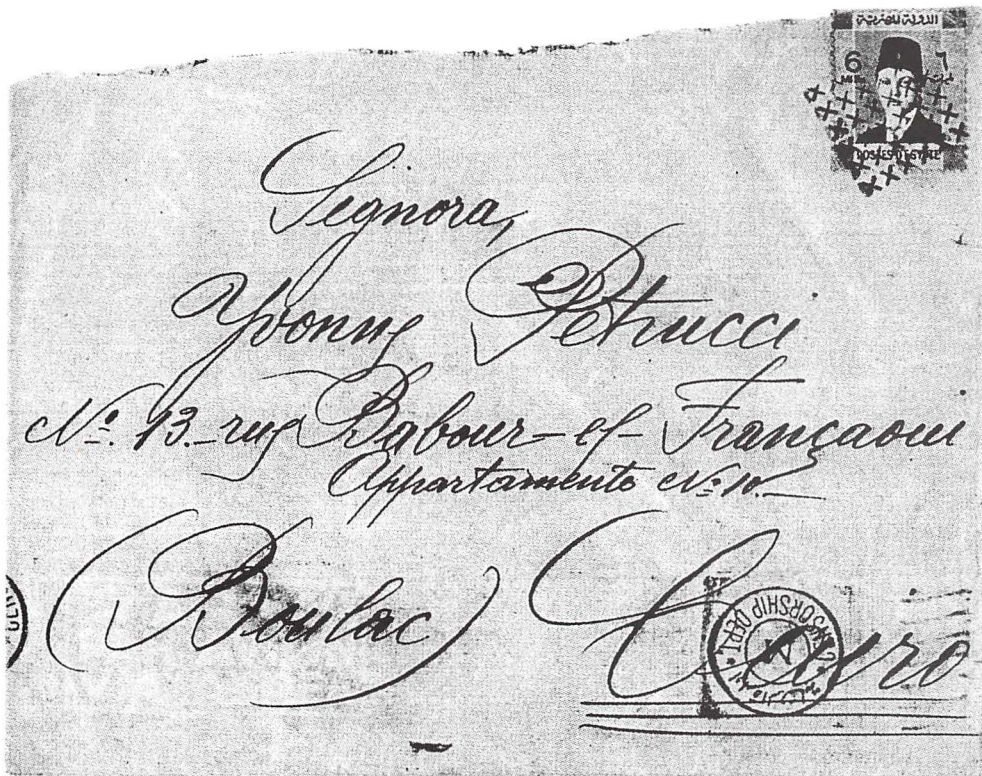 الدولة المصرية
6 ٦
POSTES D'EGYPTE
Signora,
Yvonne Petrucci
No. 13. rue Babour-el-Françaoui
Appartamento No. 10.
(Boulac) Cairo
CENSORSHIP DEPT.